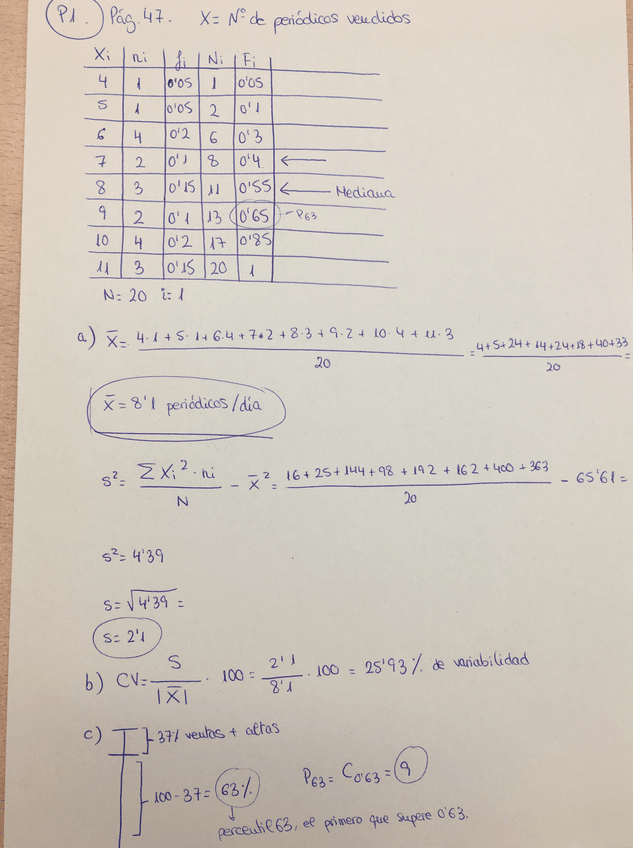 P1. Pág. 47. X = Nº de periódicos vendidos
Xi ni fi Ni Fi
4 1 0'05 1 0'05
5 1 0'05 2 0'1
6 4 0'2 6 0'3
7 2 0'1 8 0'4 ←
8 3 0'15 11 0'55 ← Mediana
9 2 0'1 13 0'65 - P63
10 4 0'2 17 0'85
11 3 0'15 20 1
N = 20 i = 1
a) X̄ = 4·1 + 5·1 + 6·4 + 7·2 + 8·3 + 9·2 + 10·4 + 11·3 / 20 = 4+5+24+14+24+18+40+33 / 20 =
X̄ = 8'1 periódicos/día
S² = Σ Xi²·ni / N - X̄² = 16+25+144+98+192+162+400+363 / 20 - 65'61 =
S² = 4'39
S = √4'39 =
S = 2'1
b) CV = S / |X̄| · 100 = 2'1 / 8'1 · 100 = 25'93% de variabilidad
c) 37% ventas + altas
100 - 37 = 63% P63 = C0'63 = 9
percentil 63, el primero que supere 0'63.